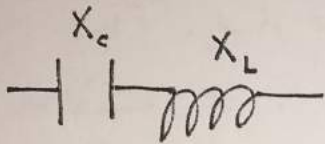 X_c
X_L